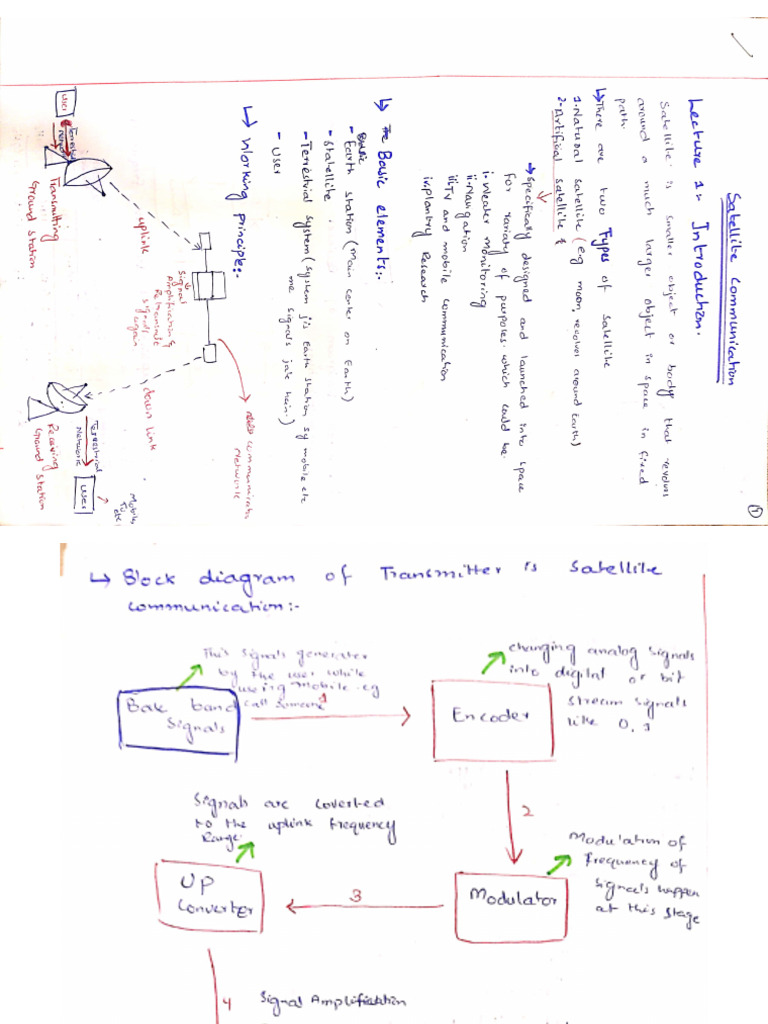 Satellite Communication
(1)
Lecture 1:- Introduction.
Satellite is smaller object or body that revolves
around a much larger object in space in fixed
path.
↳ There are two Types of satellite
1-Natural satellite (e.g moon, revolves around Earth)
2-Artificial satellite
→ Specifically designed and launched into space
for variaty of purposes. which could be.
i-Weater monitoring
ii-Navigation
iii-TV and mobile communication
iv-plantry Research
↳ Basic elements:-
- Earth station (Main center on Earth)
- Statellite
- Terrestrial system (system jis Earth station sy mobile etc
me signals jate hein.)
- User
↳ Working principle:-
communicatio
Network
Signal
Amplification &
Retransmit
signals
again
uplink
down link
User
Transmitting
Ground station
Terrestrial
Network
User
Mobile,
TV
etc
Receiving
Ground station
↳ Block diagram of Transmitter is Satellite
communication:-
This Signals generater
by the user while
using Mobile eg
call someone
changing analog signals
into digital or bit
stream signals
like 0,1
Base band
Signals
1
Encoder
2
Signals are coverted
to the uplink frequency
Range.
Modulation of
frequency of
signals happen
at this stage
UP
Converter
3
Modulator
4
Signal Amplification